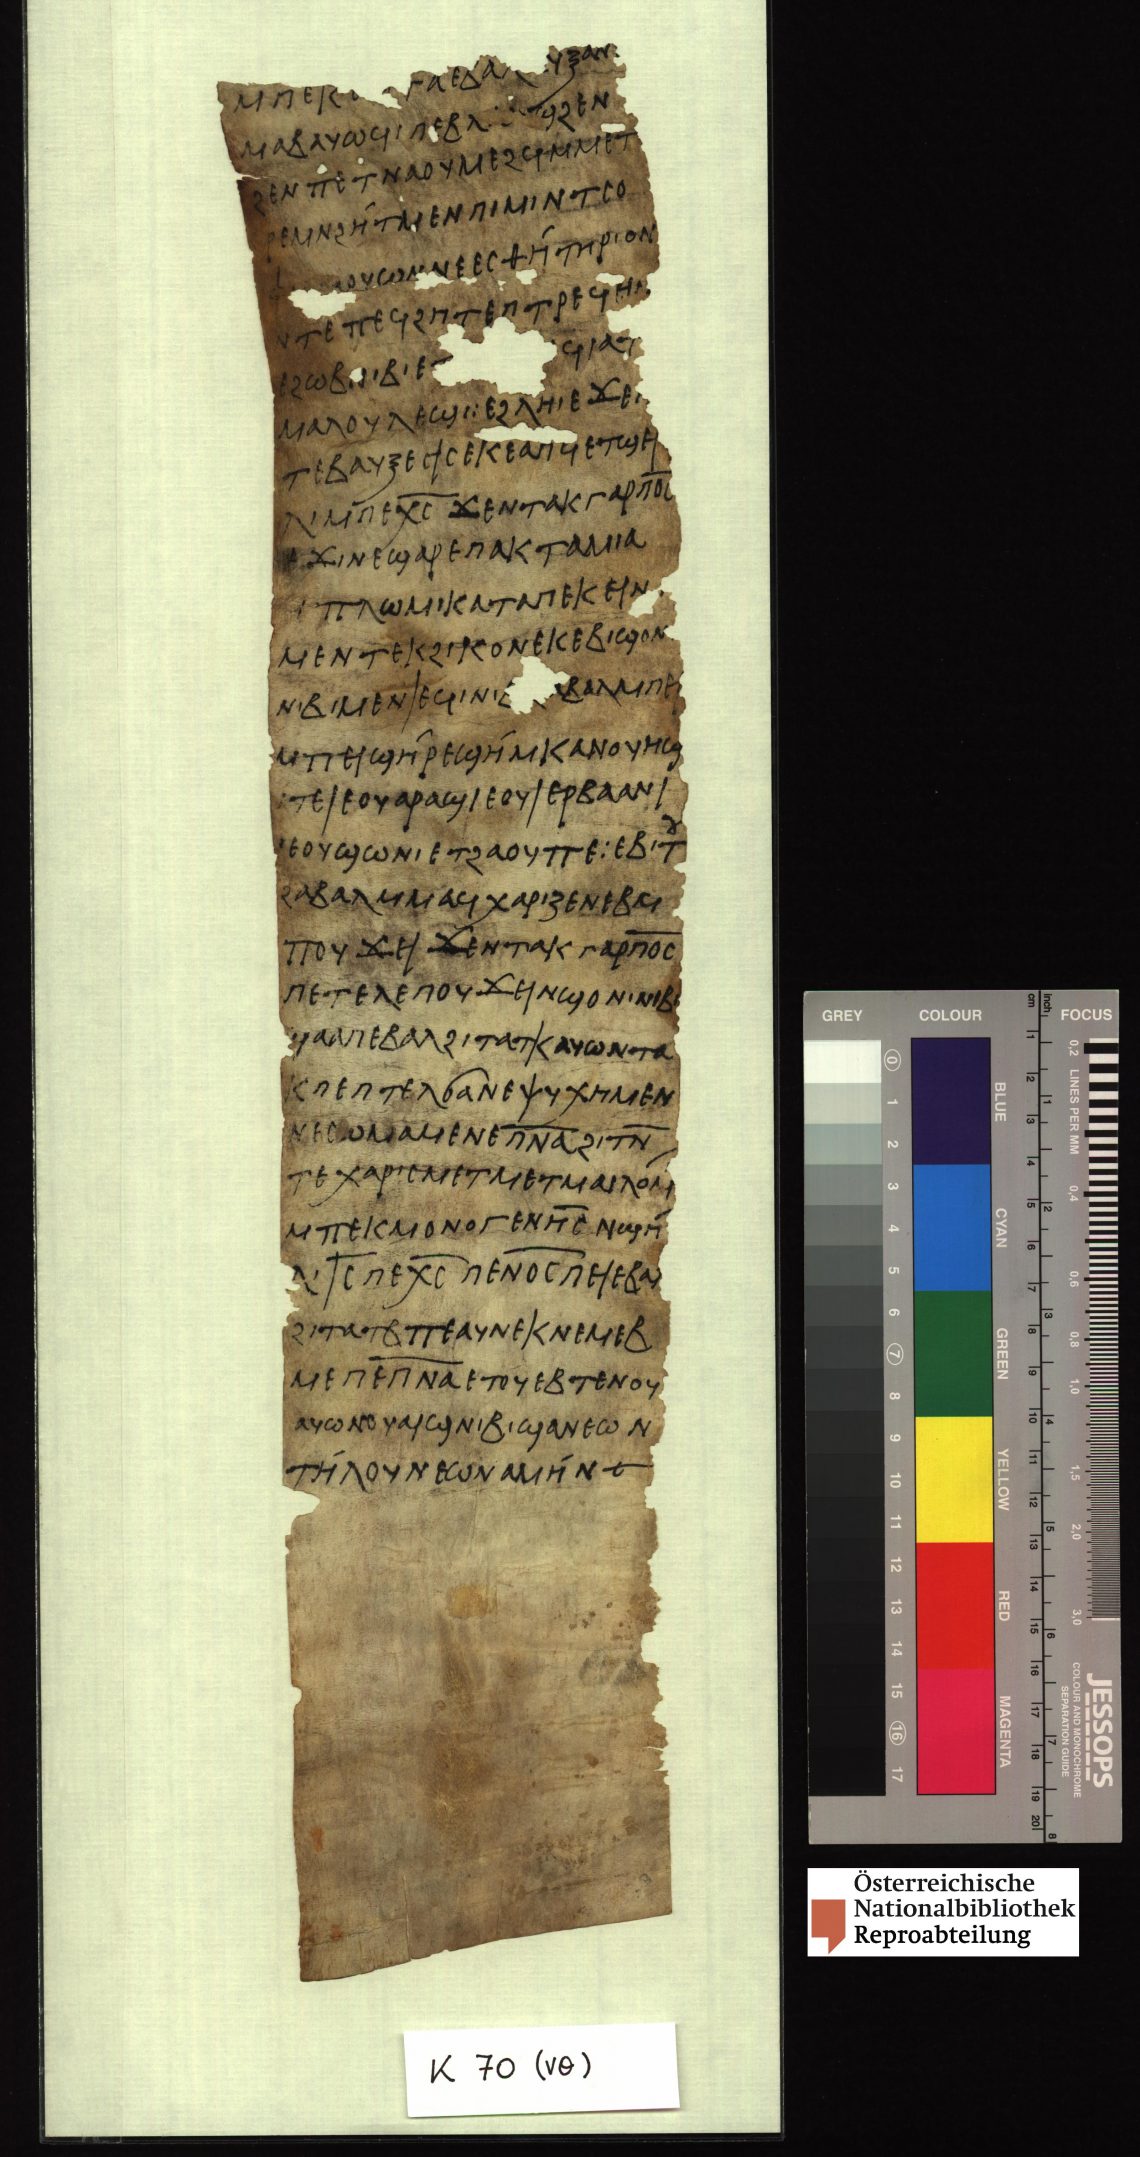 ⲙⲡⲉⲕ
ⲙⲁⲃⲁⲩⲱϥⲓⲡⲉⲃⲗ ϩⲉⲛ
ϩⲉⲛⲡⲉⲧⲛⲁⲟⲩⲙⲉϩϥⲙⲙⲉⲧ
ⲣⲉⲙⲛϩⲏⲧⲙⲉⲛⲡⲓⲙⲓⲛⲧⲥⲟ
ⲟⲩⲱⲛⲛⲉⲉⲥⲑⲏⲧⲏⲣⲓⲟⲛ
ⲛⲧⲉⲡⲉϥϩⲏⲧⲉⲡⲧⲣⲉϥⲉⲓ
ⲉϩⲱⲃⲛⲓⲃⲓⲉⲧ ϥⲓⲁⲧ
ⲙⲁⲗⲟⲩⲗⲉϣⲓ:ⲉϩⲗⲏⲓⲉϫⲉ
ⲧⲉⲃⲁⲩⲝⲉⲓⲥⲉⲕⲉⲁⲡϥⲉⲧϣⲉ
ⲗⲓⲙⲡⲉⲭ̅ⲥ̅ϫⲉⲛⲧⲁⲕⲅⲁⲣⲡⲟ̅ⲥ̅
ⲉϫⲓⲛⲉϣⲁⲣⲉⲡⲁⲕⲧⲁⲙⲓⲁ
ⲡⲗⲱⲙⲓⲕⲁⲧⲁⲡⲉⲕⲉⲓⲛ
ⲙⲉⲛⲧⲉⲕϩⲓⲕⲟⲛⲉⲕⲉⲃⲓϣⲟⲛ
ⲛⲓⲃⲓⲙⲉⲛⲓⲉϥⲓⲛⲓ ⲃⲁⲗⲙⲡⲉⲓ
ⲙⲡⲉⲓϣⲏⲣⲉϣⲏⲙⲕⲁⲛⲟⲩⲏϣ
ⲧⲉⲓⲉⲟⲩⲁⲣⲁϣⲓⲉⲟⲩⲓⲉⲣⲃⲁⲁⲛⲓ
ⲓⲉⲟⲩϣⲱⲛⲓⲉⲧϩⲁⲟⲩⲡⲉ:ⲉⲃⲓⲧ
ϩⲁⲃⲁⲗⲙⲙⲁϥⲭⲁⲣⲓⲍⲉⲛⲉⲃⲙ
ⲡⲟⲩϫⲉⲓϫⲉⲛⲧⲁⲕⲅⲁⲣⲡⲟ̅ⲥ̅
ⲡⲉⲧⲉⲗⲉⲡⲟⲩϫⲉⲓⲛϣⲟⲛⲓⲛⲓⲃⲓ
ϣⲁⲁⲡⲉⲃⲁⲗϩⲓⲧⲁⲧⲕⲁⲩⲱⲛⲧⲁ
ⲕⲡⲉⲡⲧⲉⲗϭⲁⲛⲉⲯⲩⲭⲏⲙⲉⲛ
ⲛⲉⲥⲱⲙⲁⲙⲉⲛⲉⲡ̅ⲛ̅ⲁ̅ϩⲓⲧⲛ̅
ⲧⲉⲭⲁⲣⲓⲥⲙⲉⲧⲙⲉⲧⲙⲁⲓⲗⲟⲙ
ⲙⲡⲉⲕⲙⲟⲛⲟⲅⲉⲛⲏⲥ̅ⲛϣⲏ
ⲗⲓⲓ̅ⲥ̅ⲡⲉⲭ̅ⲥ̅ⲡⲉⲛⲟ̅ⲥ̅ⲡⲉⲓⲉⲃⲁⲗ
ϩⲓⲧⲁⲧⲃⲡⲉⲁⲩⲛⲉⲕⲛⲉⲙⲉⲃ
ⲙⲉⲡⲉⲡ̅ⲛ̅ⲁ̅ⲉⲧⲟⲩⲉⲃⲧⲉⲛⲟⲩ
ⲁⲩⲱⲛⲟⲩⲁⲓϣⲛⲓⲃⲓϣⲁⲛⲉⲱⲛ
ⲧⲏⲗⲟⲩⲛⲉⲱⲛⲁⲙⲏⲛ
GREY COLOUR FOCUS
0 1 2 3 4 5 6 7 8 9 10 11 12 13 14 15 16 17
BLUE CYAN GREEN YELLOW RED MAGENTA
cm 1 2 3 4 5 6 7 8 9 10 11 12 13 14 15 16 17 18 19 20
inch 1 2 3 4 5 6 7 8
LINES PER MM
0,2 0,4 0,6 0,8 1,0 1,5 2,0 3,0
JESSOPS
COLOUR AND MONOCHROME
SEPARATION GUIDE
Österreichische
Nationalbibliothek
Reproabteilung
K 70 (vθ)